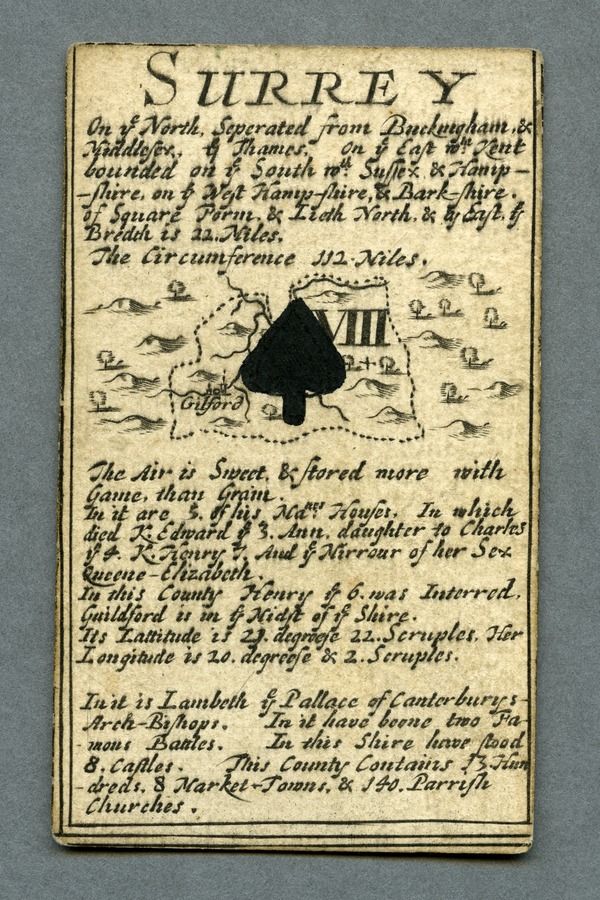 SURREY
On yͤ North, Seperated from Buckingham, &
Middlesex, by Thames, On yͤ East wᵗʰ Kent
bounded on yͤ South wᵗʰ Sussex, & Hamp-
-shire, on yͤ West Hamp-shire, & Bark-shire.
of Square Form, & Lieth North, & by East, yͤ
Bredth is 22. Miles.
The Circumference 112 Miles.
VIII
Gilford
The Air is Sweet, & stored more with
Game, than Grain.
In it are 5. of his Maᵗⁱᵉˢ Houses, In which
died K. Edward yͤ 3. Ann, daughter to Charles
yͤ 4. K. Henry 7. And yͤ Mirrour of her Sex
Queene-Elizabeth.
In this County Henry yͤ 6. was Interred,
Guildford is in yͤ Midst of yͤ Shire.
Its Lattitude is degreese 22. Scruples, Her
Longitude is 20. degreese & 2. Scruples.
In it is Lambeth yͤ Pallace of Canterburys-
Arch-Bishops. In it have beene two Fa-
-mous Battles. In this Shire have stood
8. Castles. This County Contains 13 Hun
-dreds, 8 Market-Towns, & 140. Parrish
Churches.